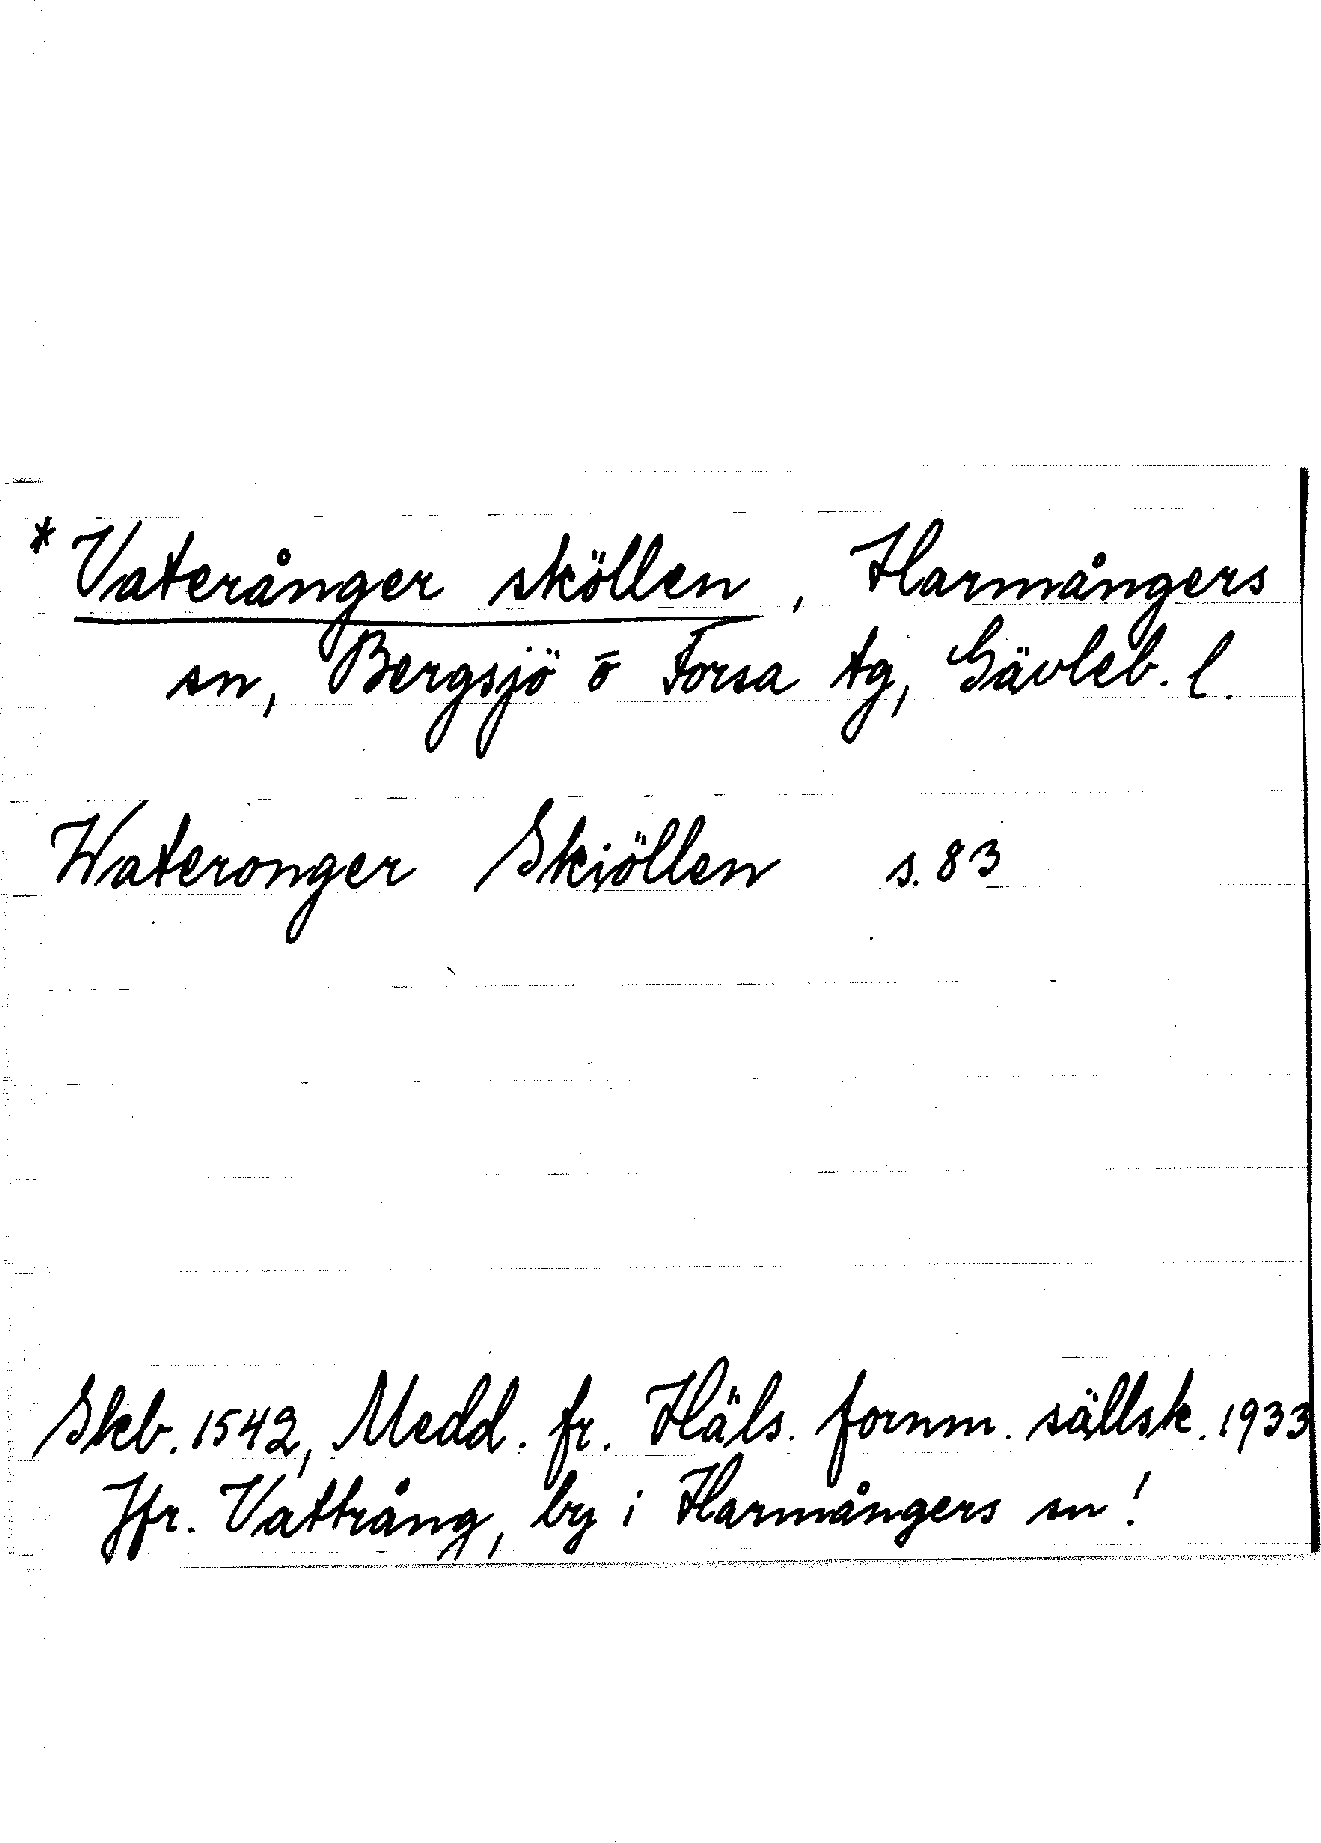 * Vaterånger sköllen, Harmångers
sn, Bergsjö o Forsa tg, Gävleb. l.
Wateronger Skiöllen s. 83
Skb. 1542, Medd. fr. Häls. fornm. sällsk. 1933
Jfr. Vattrång, by i Harmångers sn!